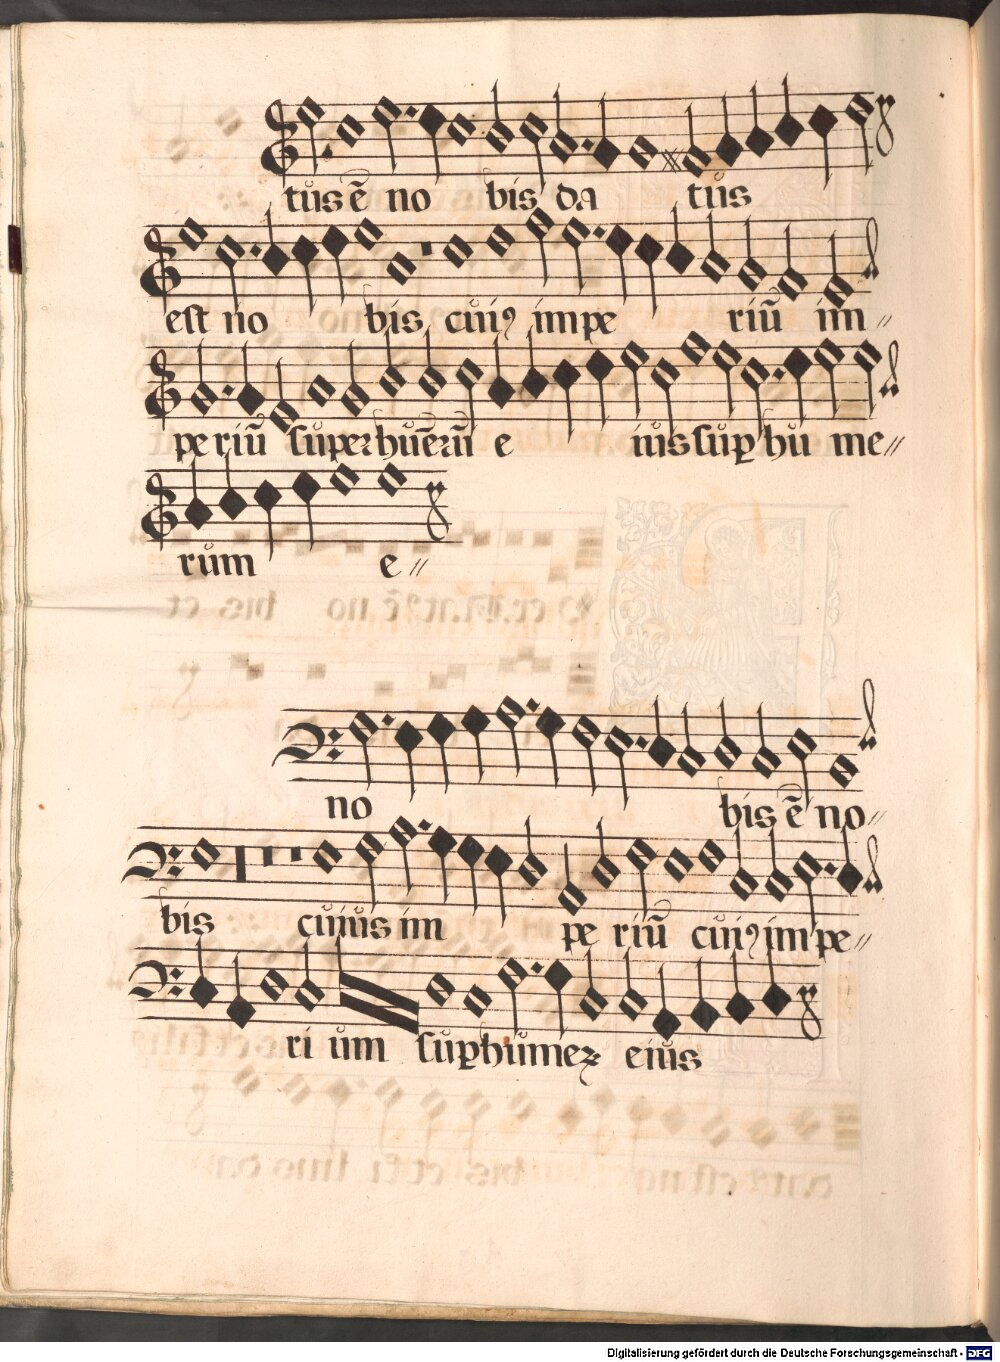 tus ē no bis da tus
est no bis cuiꝰ impe riū im〃
pe riū superhuēruʒ e ius suꝑ hu me〃
rum e〃
no bis ē no〃
bis cuius im pe riū cuiꝰ impe〃
ri um suꝑhumeꝝ eius
Digitalisierung gefördert durch die Deutsche Forschungsgemeinschaft - DFG